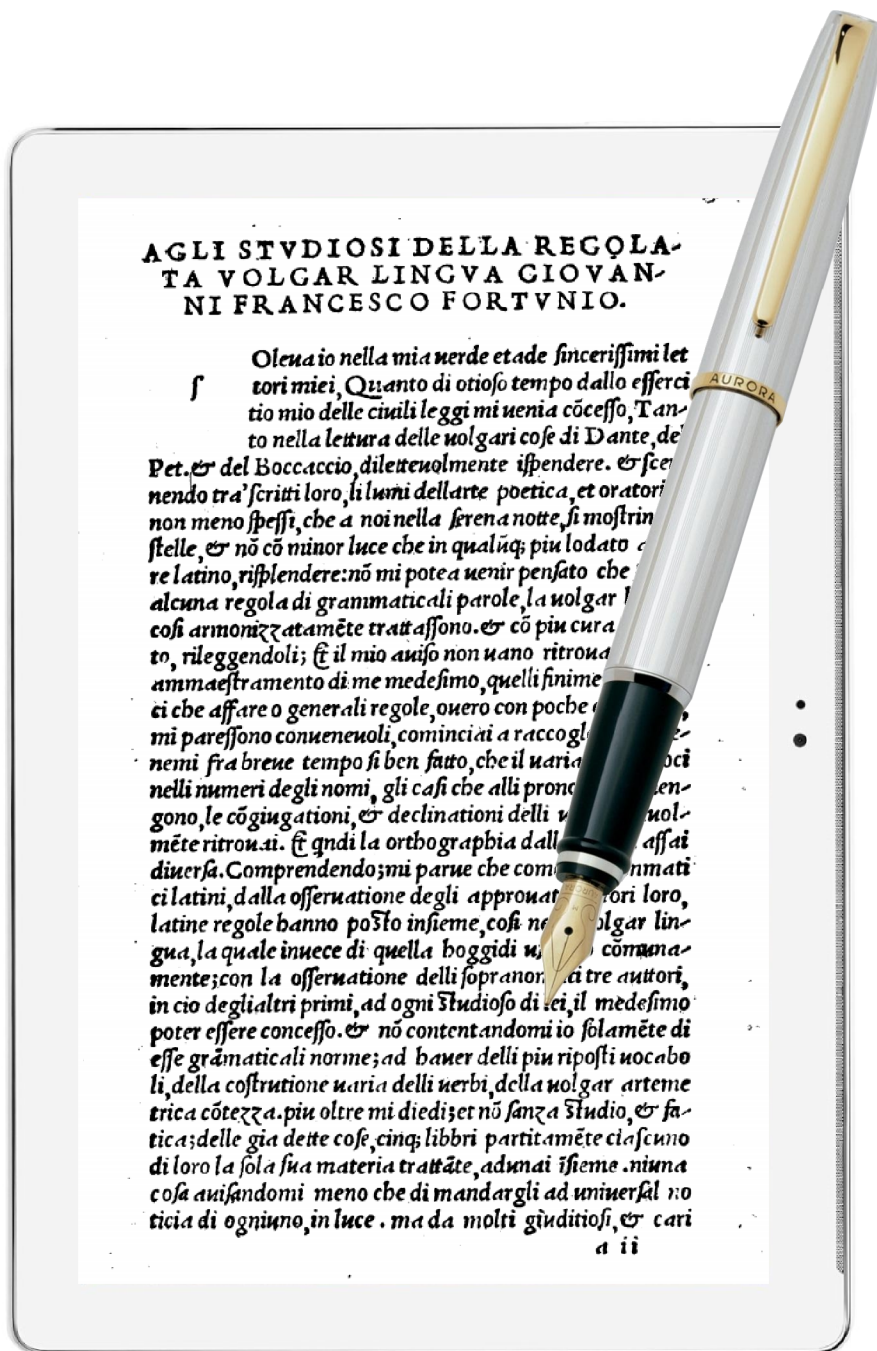 AGLI STVDIOSI DELLA REGOLA-
TA VOLGAR LINGVA GIOVAN-
NI FRANCESCO FORTVNIO.
Oleua io nella mia uerde etade ſinceriſſimi let
ſ tori miei, Quanto di otioſo tempo dallo eſſerci
tio mio delle ciuili leggi mi uenia cõceſſo, Tan-
to nella lettura delle uolgari coſe di Dante, del
Pet. & del Boccaccio, diletteuolmente iſpendere. & ſce
nendo tra' ſcritti loro, li lumi dellarte poetica, et oratori
non meno ſpeſſi, che a noi nella ſerena notte, ſi moſtrin
ſtelle, & nõ cõ minor luce che in qualũq; piu lodato
re latino, riſplendere: nõ mi potea uenir penſato che
alcuna regola di grammaticali parole, la uolgar
coſi armonizzatamẽte trattaſſono. & cõ piu cura
to, rileggendoli; Et il mio auiſo non uano ritroua
ammaeſtramento di me medeſimo, quelli finime
ci che affare o generali regole, ouero con poche
mi pareſſono conueneuoli, cominciai a raccogl e-
nemi fra breue tempo ſi ben fatto, che il uaria oci
nelli numeri degli nomi, gli caſi che alli pron en-
gono, le cõgiugationi, & declinationi delli uol-
mẽte ritrouai. Et qndi la orthographia dall aſſai
diuerſa. Comprendendo; mi parue che com mati
ci latini, dalla oſſeruatione degli approuat tori loro,
latine regole hanno poſto inſieme, coſi ne olgar lin-
gua, la quale inuece di quella hoggidi u cõmuna-
mente; con la oſſeruatione delli ſopranom ti tre auttori,
in cio deglialtri primi, ad ogni ſtudioſo di lei, il medeſimo
poter eſſere conceſſo. & nõ contentandomi io ſolamẽte di
eſſe grãmaticali norme; ad hauer delli piu ripoſti uocabo
li, della coſtrutione uaria delli uerbi, della uolgar arteme
trica cõtezza. piu oltre mi diedi; et nõ ſanza ſtudio, & fa-
tica; delle gia dette coſe, cinq; libbri partitamẽte ciaſcuno
di loro la ſola ſua materia trattãte, adunai ĩſieme. niuna
coſa auiſandomi meno che di mandargli ad uniuerſal no
ticia di ogniuno, in luce. ma da molti giuditioſi, & cari
a ii
AURORA